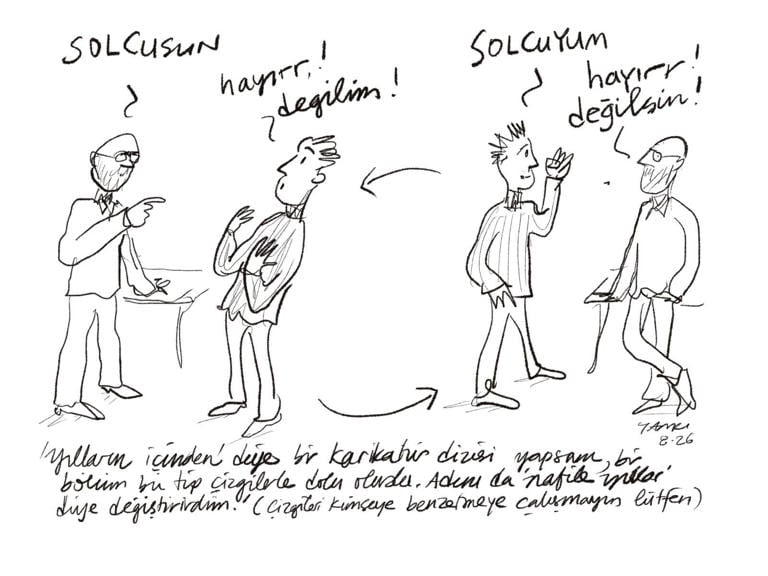 SOLCUSUN
hayırr,!
değilim!
SOLCUYUM
hayırr!
değilsin!
8-26
'Yılların içinden' diye bir karikatür dizisi yapsam, bir
bölüm bu tip çizgilerle dolu olurdu. Adını da 'nafile yıllar'
diye değiştirirdim.' (Çizgileri kimseye benzetmeye çalışmayın lütfen)